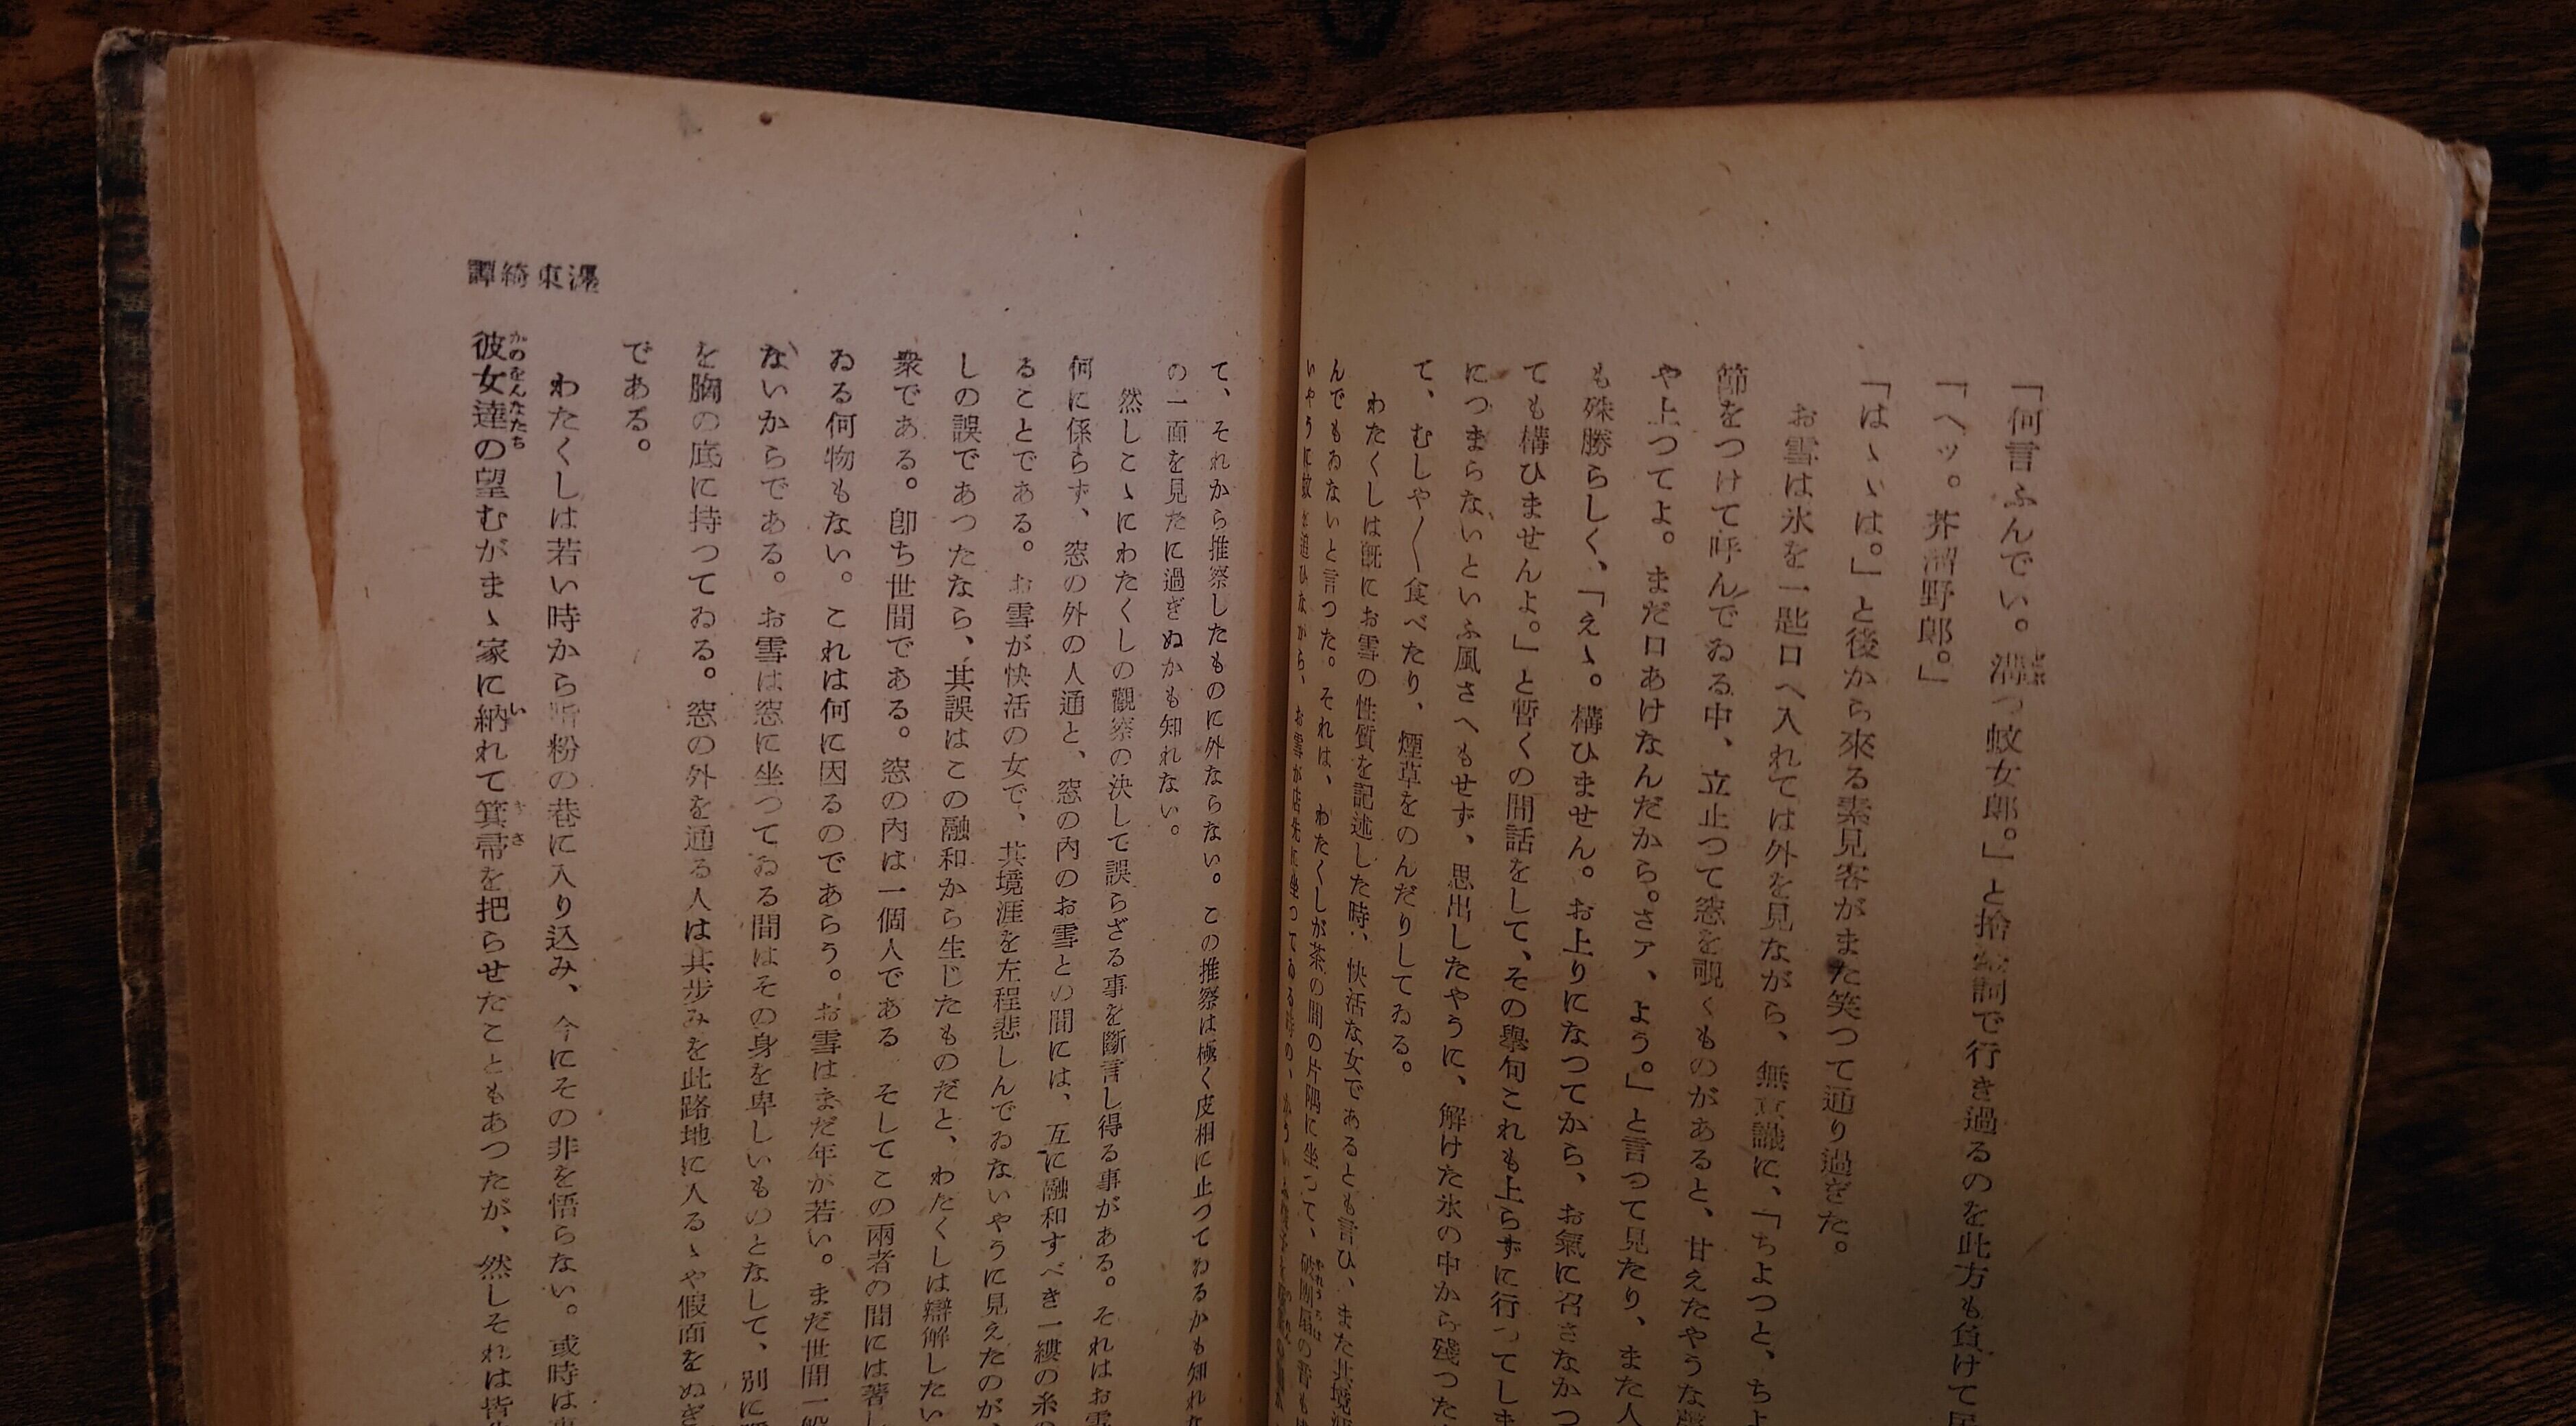 「何言ふんでい。溝つ蚊女郎。」と拾台詞で行き過るのを此方も負けて
「ヘッ。芥溜野郎。」
「はゝゝは。」と後から來る素見客がまた笑つて通り過ぎた。
お雪は氷を一匙口へ入れては外を見ながら、無意識に、「ちよつと、ちよ
節をつけて呼んでゐる中、立止つて窓を覗くものがあると、甘えたやうな
や上つてよ。まだ口あけなんだから。さア、よう。」と言つて見たり、また人
も殊勝らしく、「えゝ。構ひません。お上りになつてから、お氣に召さなかつ
ても構ひませんよ。」と暫くの間話をして、その擧句これも上らずに行つてしま
につまらないといふ風さへもせず、思出したやうに、解けた氷の中から殘つた
て、むしや〱食べたり、煙草をのんだりしてゐる。
わたくしは既にお雪の性質を記述した時、快活な女であるとも言ひ、また其境涯
んでもゐないと言つた。それは、わたくしが茶の間の片隅に坐つて、破團扇の音も
いやうに蚊を追ひながら、お雪が店先に坐つてゐる時の、かうい
て、それから推察したものに外ならない。この推察は極く皮相に止つてゐるかも知れな
の一面を見たに過ぎぬかも知れない。
然しこゝにわたくしの觀察の決して誤らざる事を斷言し得る事がある。それはお雪
何に係らず、窓の外の人通と、窓の内のお雪との間には、互に融和すべき一縷の糸の
ることである。お雪が快活の女で、其境涯を左程悲しんでゐないやうに見えたのが、
しの誤であつたなら、其誤はこの融和から生じたものだと、わたくしは辯解したい
衆である。卽ち世間である。窓の内は一個人である そしてこの兩者の間には著し
ゐる何物もない。これは何に因るのであらう。お雪はまだ年が若い。まだ世間一般
ないからである。お雪は窓に坐つてゐる間はその身を卑しいものとなして、別に
を胸の底に持つてゐる。窓の外を通る人は其步みを此路地に入るゝや假面をぬぎ
である。
わたくしは若い時から脂粉の巷に入り込み、今にその非を悟らない。或時は
彼女達の望むがまゝ家に納れて箕帚を把らせたこともあつたが、然しそれは皆
濹東綺譚